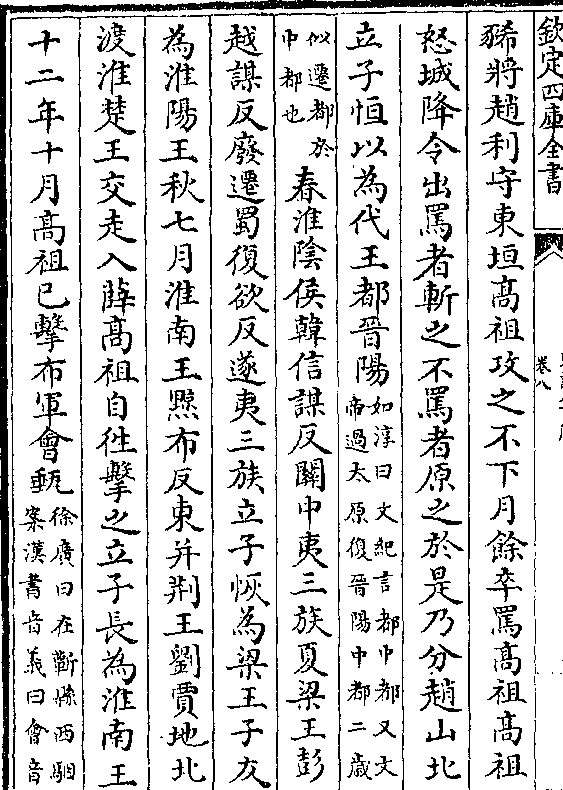 欽定四庫全書
卷八
豨將趙利守東垣高祖攻之不下月餘卒罵高祖高祖
怒城降令出罵者斬之不罵者原之於是乃分趙山北
立子恒以為代王都晉陽如淳曰文紀言都中都又文帝過太原復晉陽中都二歲
似遷都於中都也春淮陰侯韓信謀反關中夷三族夏梁王彭
越謀反廢遷蜀復欲反遂夷三族立子恢為梁王子友
為淮陽王秋七月淮南王黥布反東并荆王劉賈地北
渡淮楚王交走入薛高祖自往擊之立子長為淮南王
十二年十月高祖已擊布軍會甀徐廣曰在蘄縣西駰案漢書音義曰會音